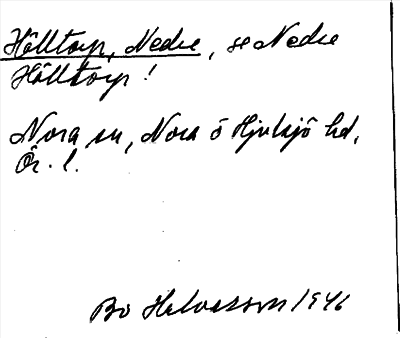 Hölltorp, Nedre, se Nedre
Hölltorp!
Nora sn, Nora o Hjulsjö hd,
Ör. l.
Bo Halvarsson 1946